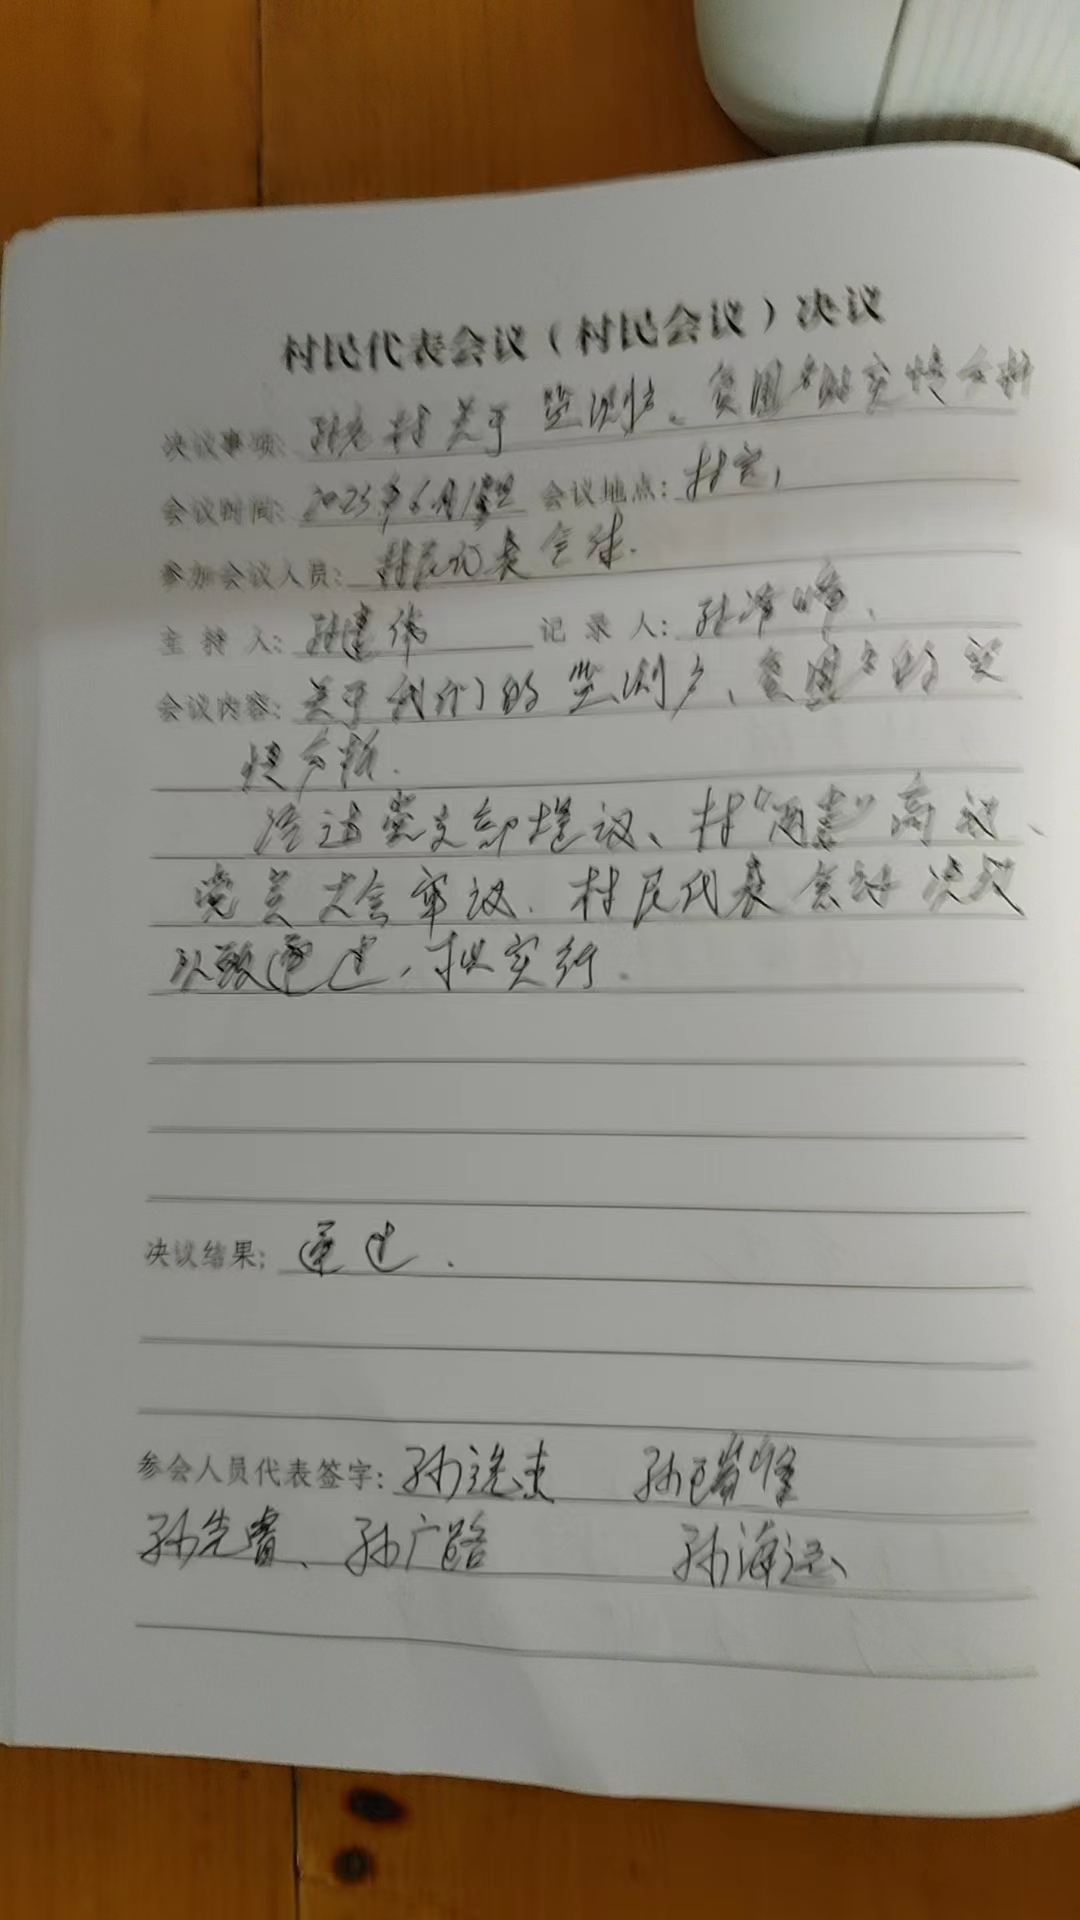 村民代表会议（村民会议）决议
决议事项：村关于监测户、贫困户的实情分析
会议时间：2023年6月 会议地点：村室
参加会议人员：村民代表全体.
主持人：孙建伟 记录人：孙
会议内容：关于我们的监测户、贫困户的实
情分析.
经过党支部提议、村“两委”商议、
党员大会审议.村民代表会议决议
以致通过，拟实行.
决议结果：通过.
参会人员代表签字：孙 孙瑞峰
孙先睿、孙广路 孙海运